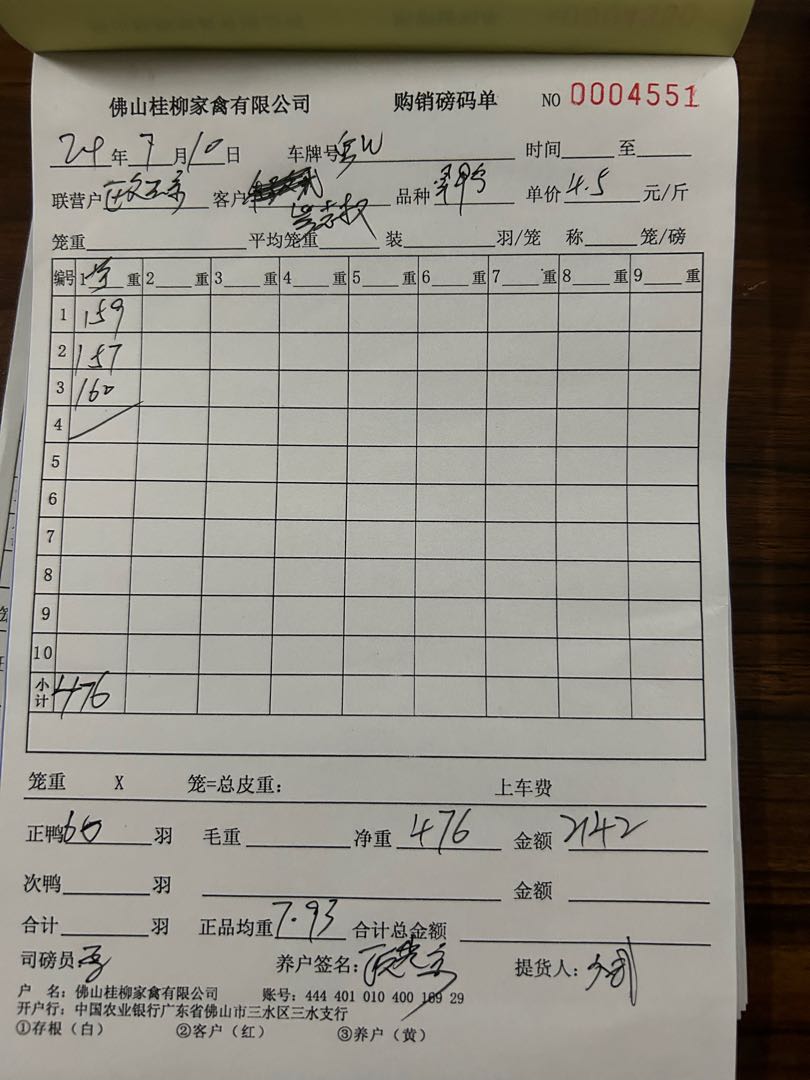 佛山桂柳家禽有限公司 购销磅码单 NO 0004551
24年7月10日 车牌号 时间 至
联营户 客户 品种 单价4.5元/斤
笼重 平均笼重 装 羽/笼 称 笼/磅
编号 1 重 2 重 3 重 4 重 5 重 6 重 7 重 8 重 9 重
1 159
2 157
3 160
4
5
6
7
8
9
10
小计 476
笼重 X 笼=总皮重: 上车费
正鸭60羽 毛重 净重476 金额2142
次鸭 羽 金额
合计 羽 正品均重7.93 合计总金额
司磅员 养户签名: 提货人:
户 名: 佛山桂柳家禽有限公司 账号: 444 401 010 400 169 29
开户行: 中国农业银行广东省佛山市三水区三水支行
①存根(白) ②客户(红) ③养户(黄)